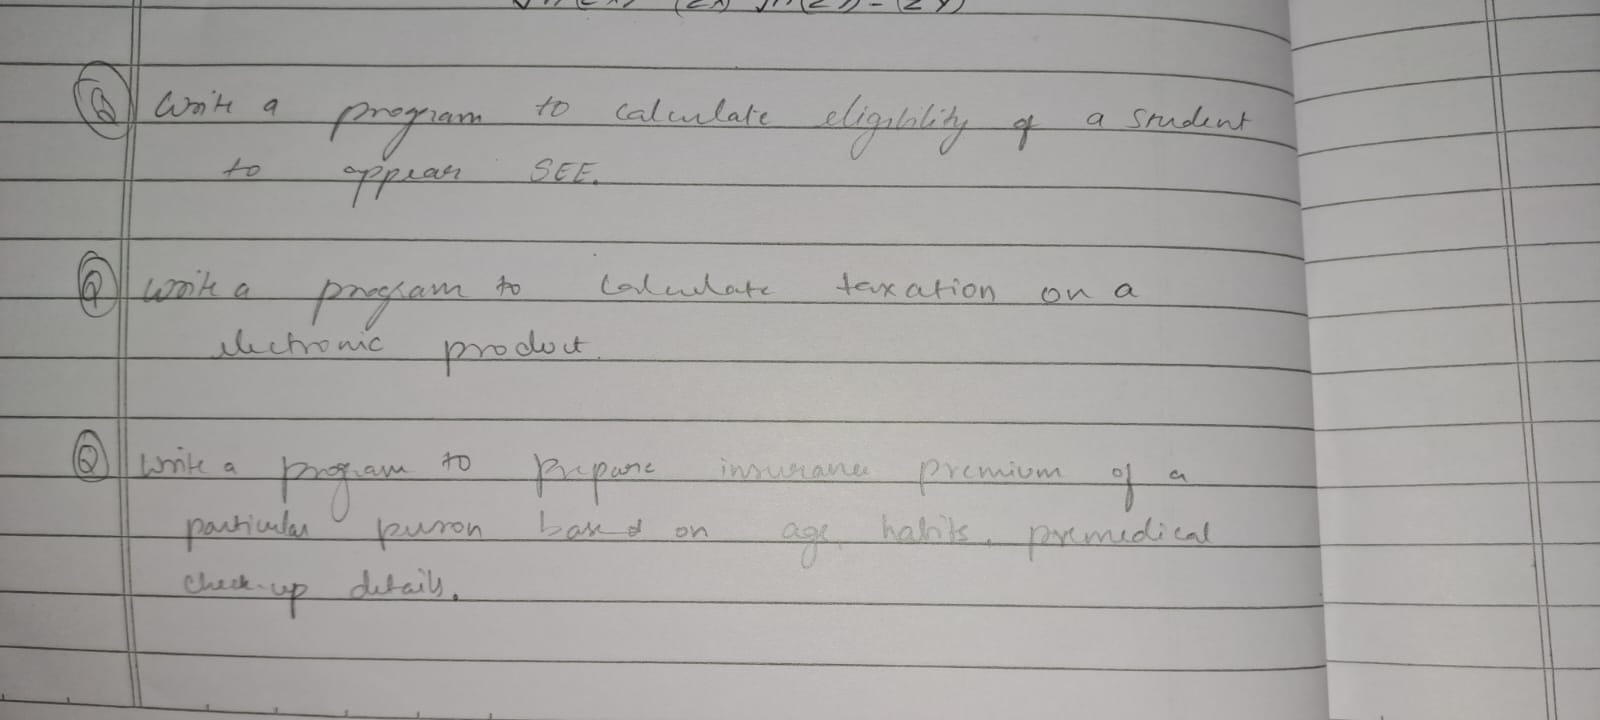 Q Write a program to calculate eligibility of a student
to appear SEE.
Q Write a program to calculate taxation on a
electronic product.
Q Write a program to prepare insurance premium of a
particular person based on age, habits, premedical
check-up details.